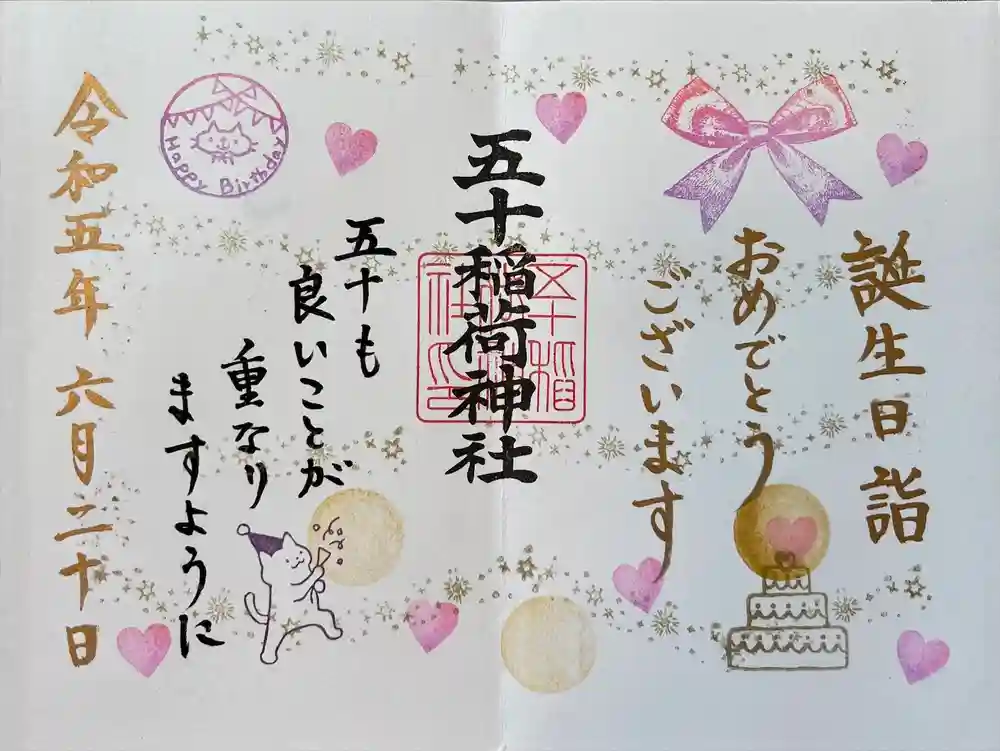 誕生日詣
おめでとう
ございます
五十稲荷神社
五十も
良いことが
重なり
ますように
Happy Birthday
令和五年六月二十日